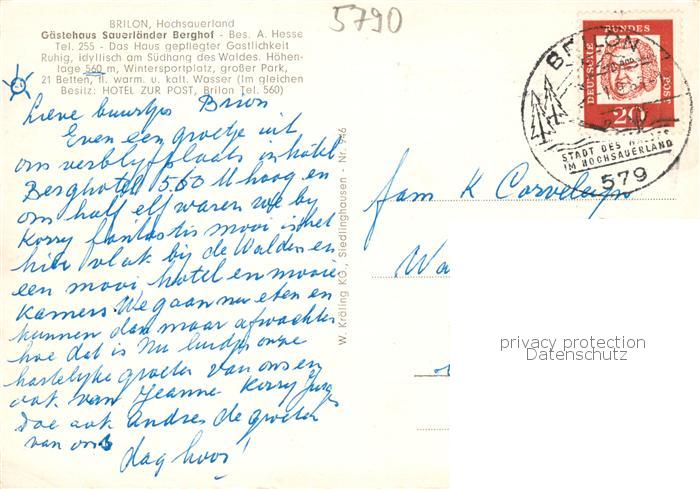 5790
BRILON, Hochsauerland
Gästehaus Sauerländer Berghof - Bes. A. Hesse
Tel. 255 - Das Haus gepflegter Gastlichkeit
Ruhig, idyllisch am Südhang des Waldes. Höhen-
lage 560 m, Wintersportplatz, großer Park,
21 Betten, fl. warm. u. kalt. Wasser (Im gleichen
Besitz: HOTEL ZUR POST, Brilon Tel. 560)
Lieve buurtjes Brion
Even een groetje uit
ons verblijfplaats in hotel
Berghotel 560 M hoog en
om half elf waren we by
Korry fantastis mooi is het
hier vlak bij de Walden en
een mooi hotel en mooie
kamers. We gaan nu eten en
kunnen dan maar afwachten
hoe dat is Nu luidjes onze
hartelijke groeten van ons en
ook van Jeanne Korry
doe ook andres de groeten
van ons
dag hoor!
W. Kröling KG., Siedlinghausen - Nr. 946
DEUTSCHE BUNDES POST
20
BRILON
STADT DES WALDES
IM HOCHSAUERLAND
579
fam K Corveleyn
Wa
privacy protection
Datenschutz